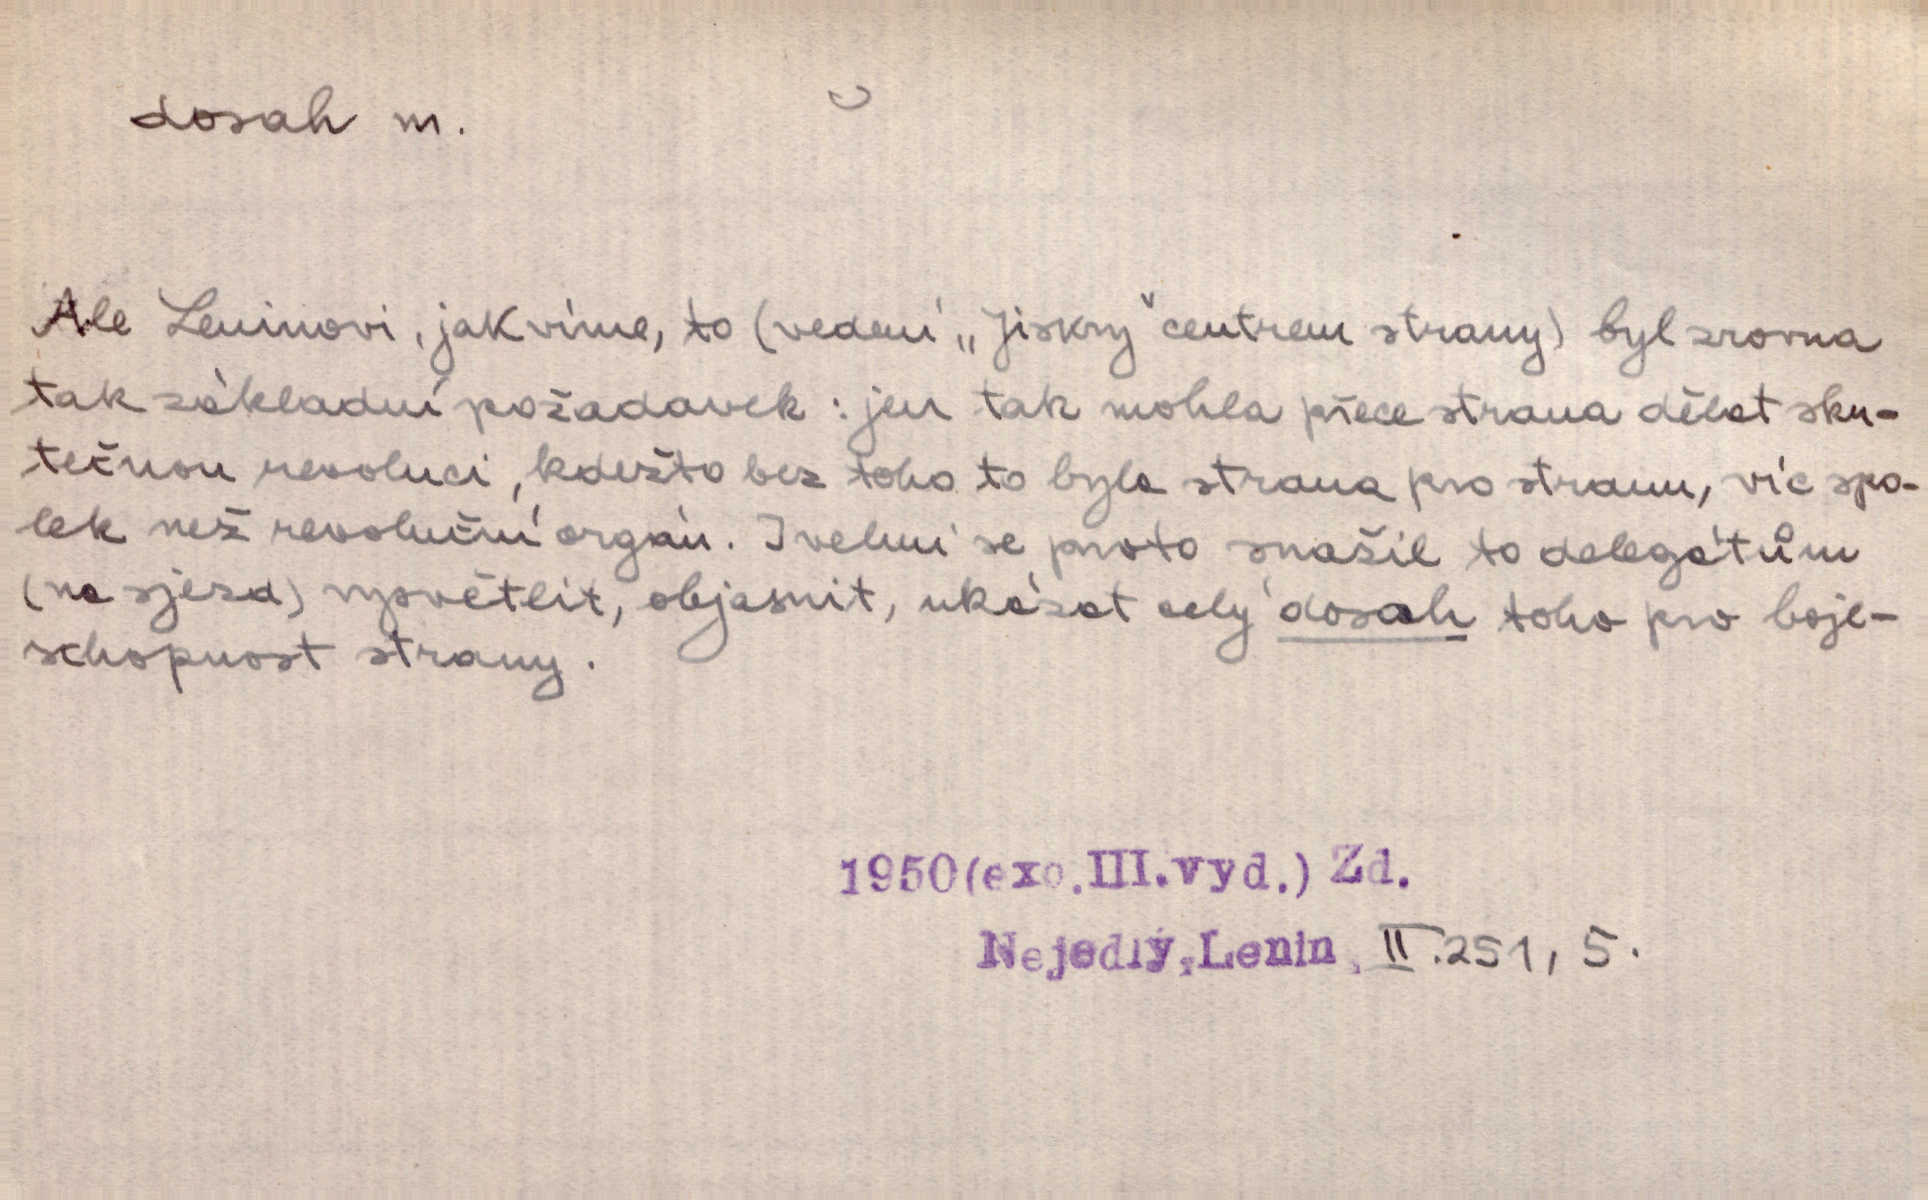 dosah m.
Ale Leninovi, jak víme, to (vedení „Jiskry“ centrem strany) byl zrovna
tak základní požadavek : jen tak mohla přece strana dělat sku-
tečnou revoluci, kdežto bez toho to byla strana pro stranu, víc spo-
lek než revoluční orgán. I velmi se proto snažil to delegátům
(na sjezd) vysvětlit, objasnit, ukázat celý dosah toho pro boje-
schopnost strany.
1950(exc.III.vyd.) Zd.
Nejedlý,Lenin, II.251, 5.